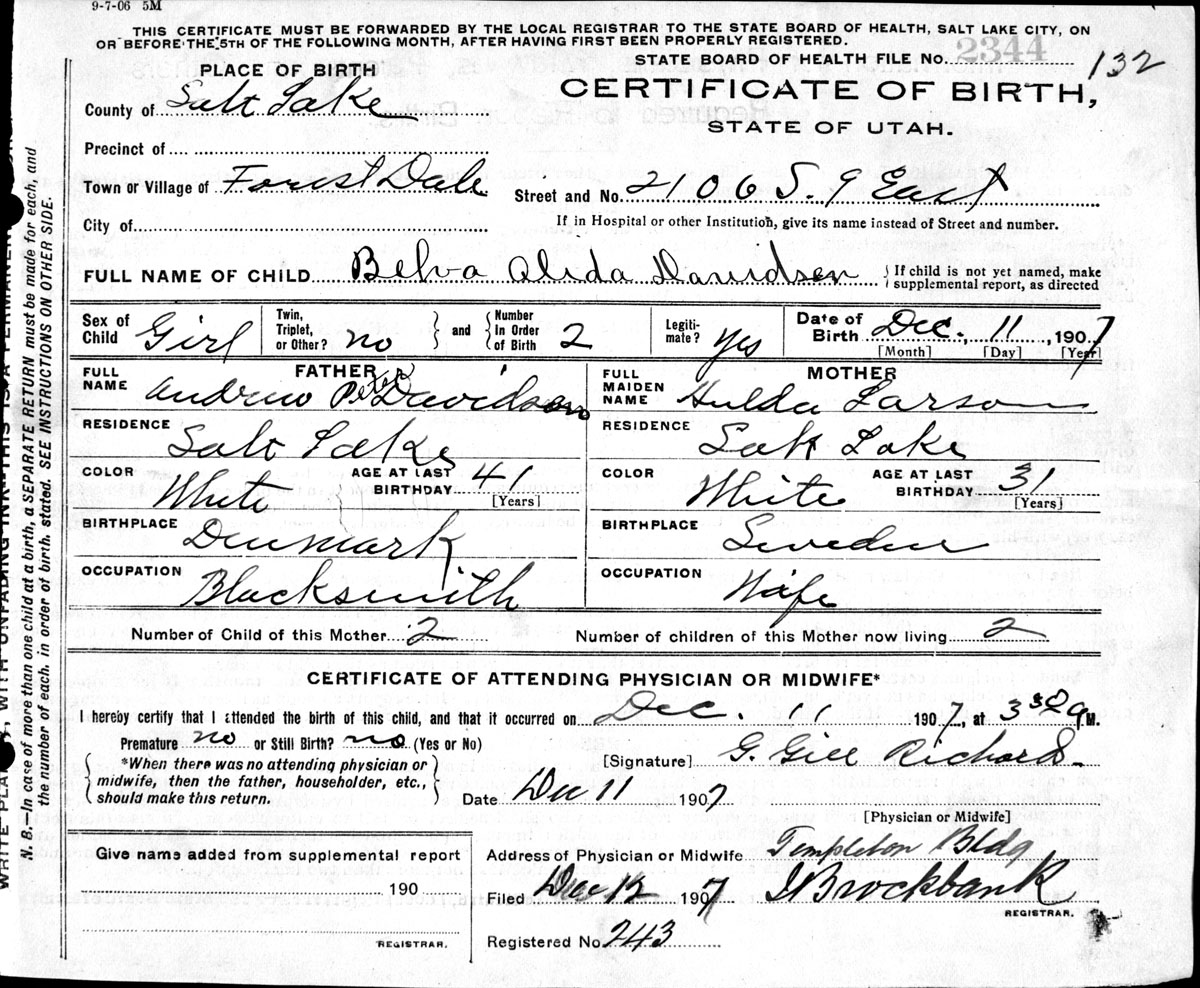 9-7-06 5M
THIS CERTIFICATE MUST BE FORWARDED BY THE LOCAL REGISTRAR TO THE STATE BOARD OF HEALTH, SALT LAKE CITY, ON
OR BEFORE THE 5TH OF THE FOLLOWING MONTH, AFTER HAVING FIRST BEEN PROPERLY REGISTERED.
STATE BOARD OF HEALTH FILE NO. 2344 132
PLACE OF BIRTH
CERTIFICATE OF BIRTH,
STATE OF UTAH.
County of Salt Lake
Precinct of
Town or Village of Forest Dale
Street and No. 2106 S. 9 East
City of
If in Hospital or other Institution, give its name instead of Street and number.
FULL NAME OF CHILD Belva Alida Davidsen
If child is not yet named, make
supplemental report, as directed
Sex of Child Girl
Twin, Triplet, or Other? no
and Number In Order of Birth 2
Legiti-mate? Yes
Date of Birth Dec. 11, 1907
[Month] [Day] [Year]
FATHER
FULL NAME Andrew Peter Davidson
RESIDENCE Salt Lake
COLOR White
AGE AT LAST BIRTHDAY 41 [Years]
BIRTHPLACE Denmark
OCCUPATION Blacksmith
MOTHER
FULL MAIDEN NAME Hulda Larson
RESIDENCE Salt Lake
COLOR White
AGE AT LAST BIRTHDAY 31 [Years]
BIRTHPLACE Sweden
OCCUPATION Wife
Number of Child of this Mother 2
Number of children of this Mother now living 2
CERTIFICATE OF ATTENDING PHYSICIAN OR MIDWIFE*
I hereby certify that I attended the birth of this child, and that it occurred on Dec. 11 1907, at 3 30 a M.
Premature no or Still Birth? no (Yes or No)
*When there was no attending physician or
midwife, then the father, householder, etc.,
should make this return.
[Signature] G. Gill Richards
Date Dec 11 1907
[Physician or Midwife]
Give name added from supplemental report
190
REGISTRAR.
Address of Physician or Midwife Templeton Bldg
Filed Dec 12 1907 Brockbank
REGISTRAR.
Registered No. 243
N. B.—In case of more than one child at a birth, a SEPARATE RETURN must be made for each, and
the number of each, in order of birth, stated. SEE INSTRUCTIONS ON OTHER SIDE.
WITH UNFADING INK—THIS IS A